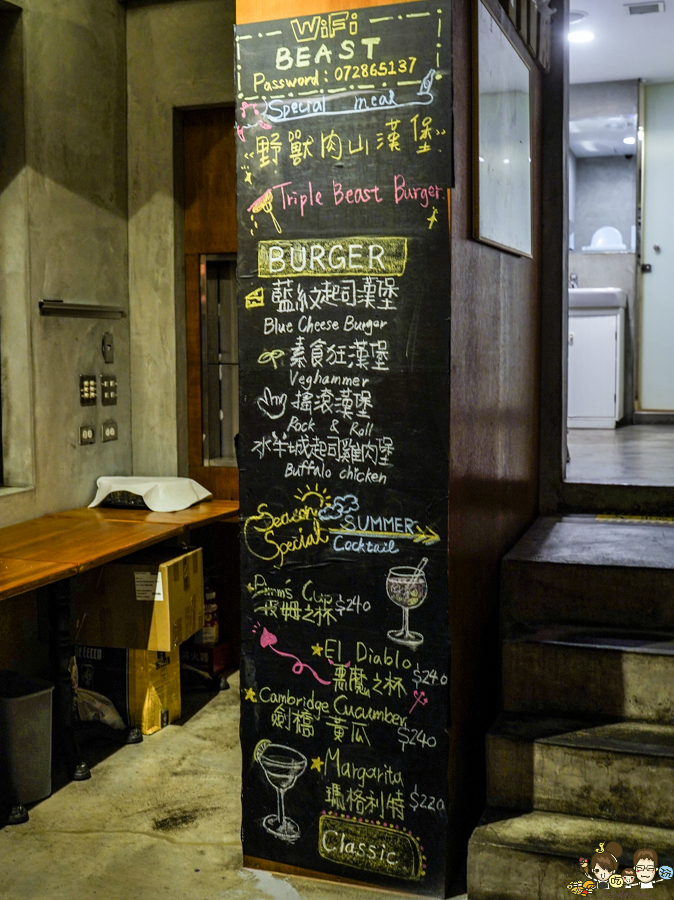 WiFi
BEAST
Password: 072865137
Special meal
"野獸肉山漢堡"
Triple Beast Burger
BURGER
藍紋起司漢堡
Blue Cheese Burger
素食狂漢堡
Veghammer
搖滾漢堡
Rock & Roll
水牛城起司雞肉堡
Buffalo chicken
Season Special
SUMMER
Cocktail
Pimm's Cup
皮姆之杯 $240
El Diablo
惡魔之杯 $240
Cambridge Cucumber
劍橋黃瓜 $240
Margarita
瑪格利特 $220
Classic